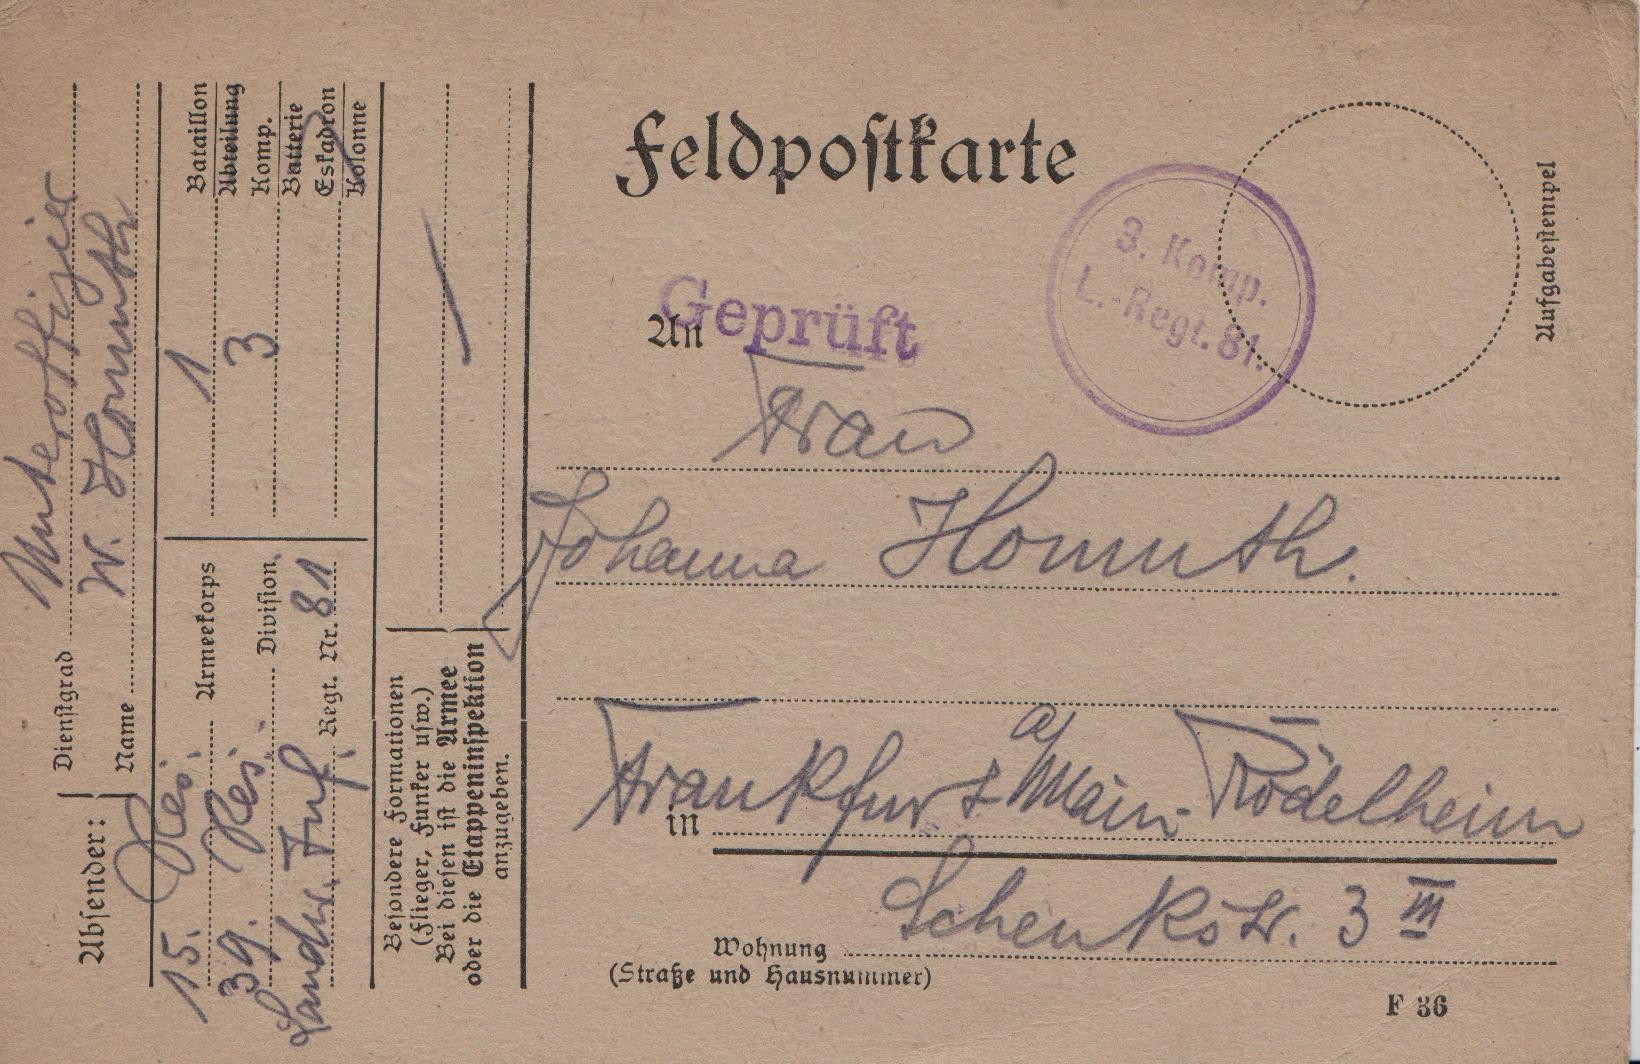 Feldpostkarte
3. Komp.
L.-Regt. 81.
Aufgabestempel
An
Geprüft
Frau
Johanna Homuth.
in Frankfurt a/Main-Rödelheim
Wohnung Schenkstr. 3 III
(Straße und Hausnummer)
F 36
Absender:
Dienstgrad Unteroffizier
Name W. Homuth
15. Res. Armeekorps
39. Res. Division.
Landw. Inf. Regt. Nr. 81
1 Bataillon
Abteilung
3 Komp.
Batterie
Eskadron
Kolonne
Besondere Formationen
(Flieger, Funker usw.)
Bei diesen ist die Armee
oder die Etappeninspektion
anzugeben.